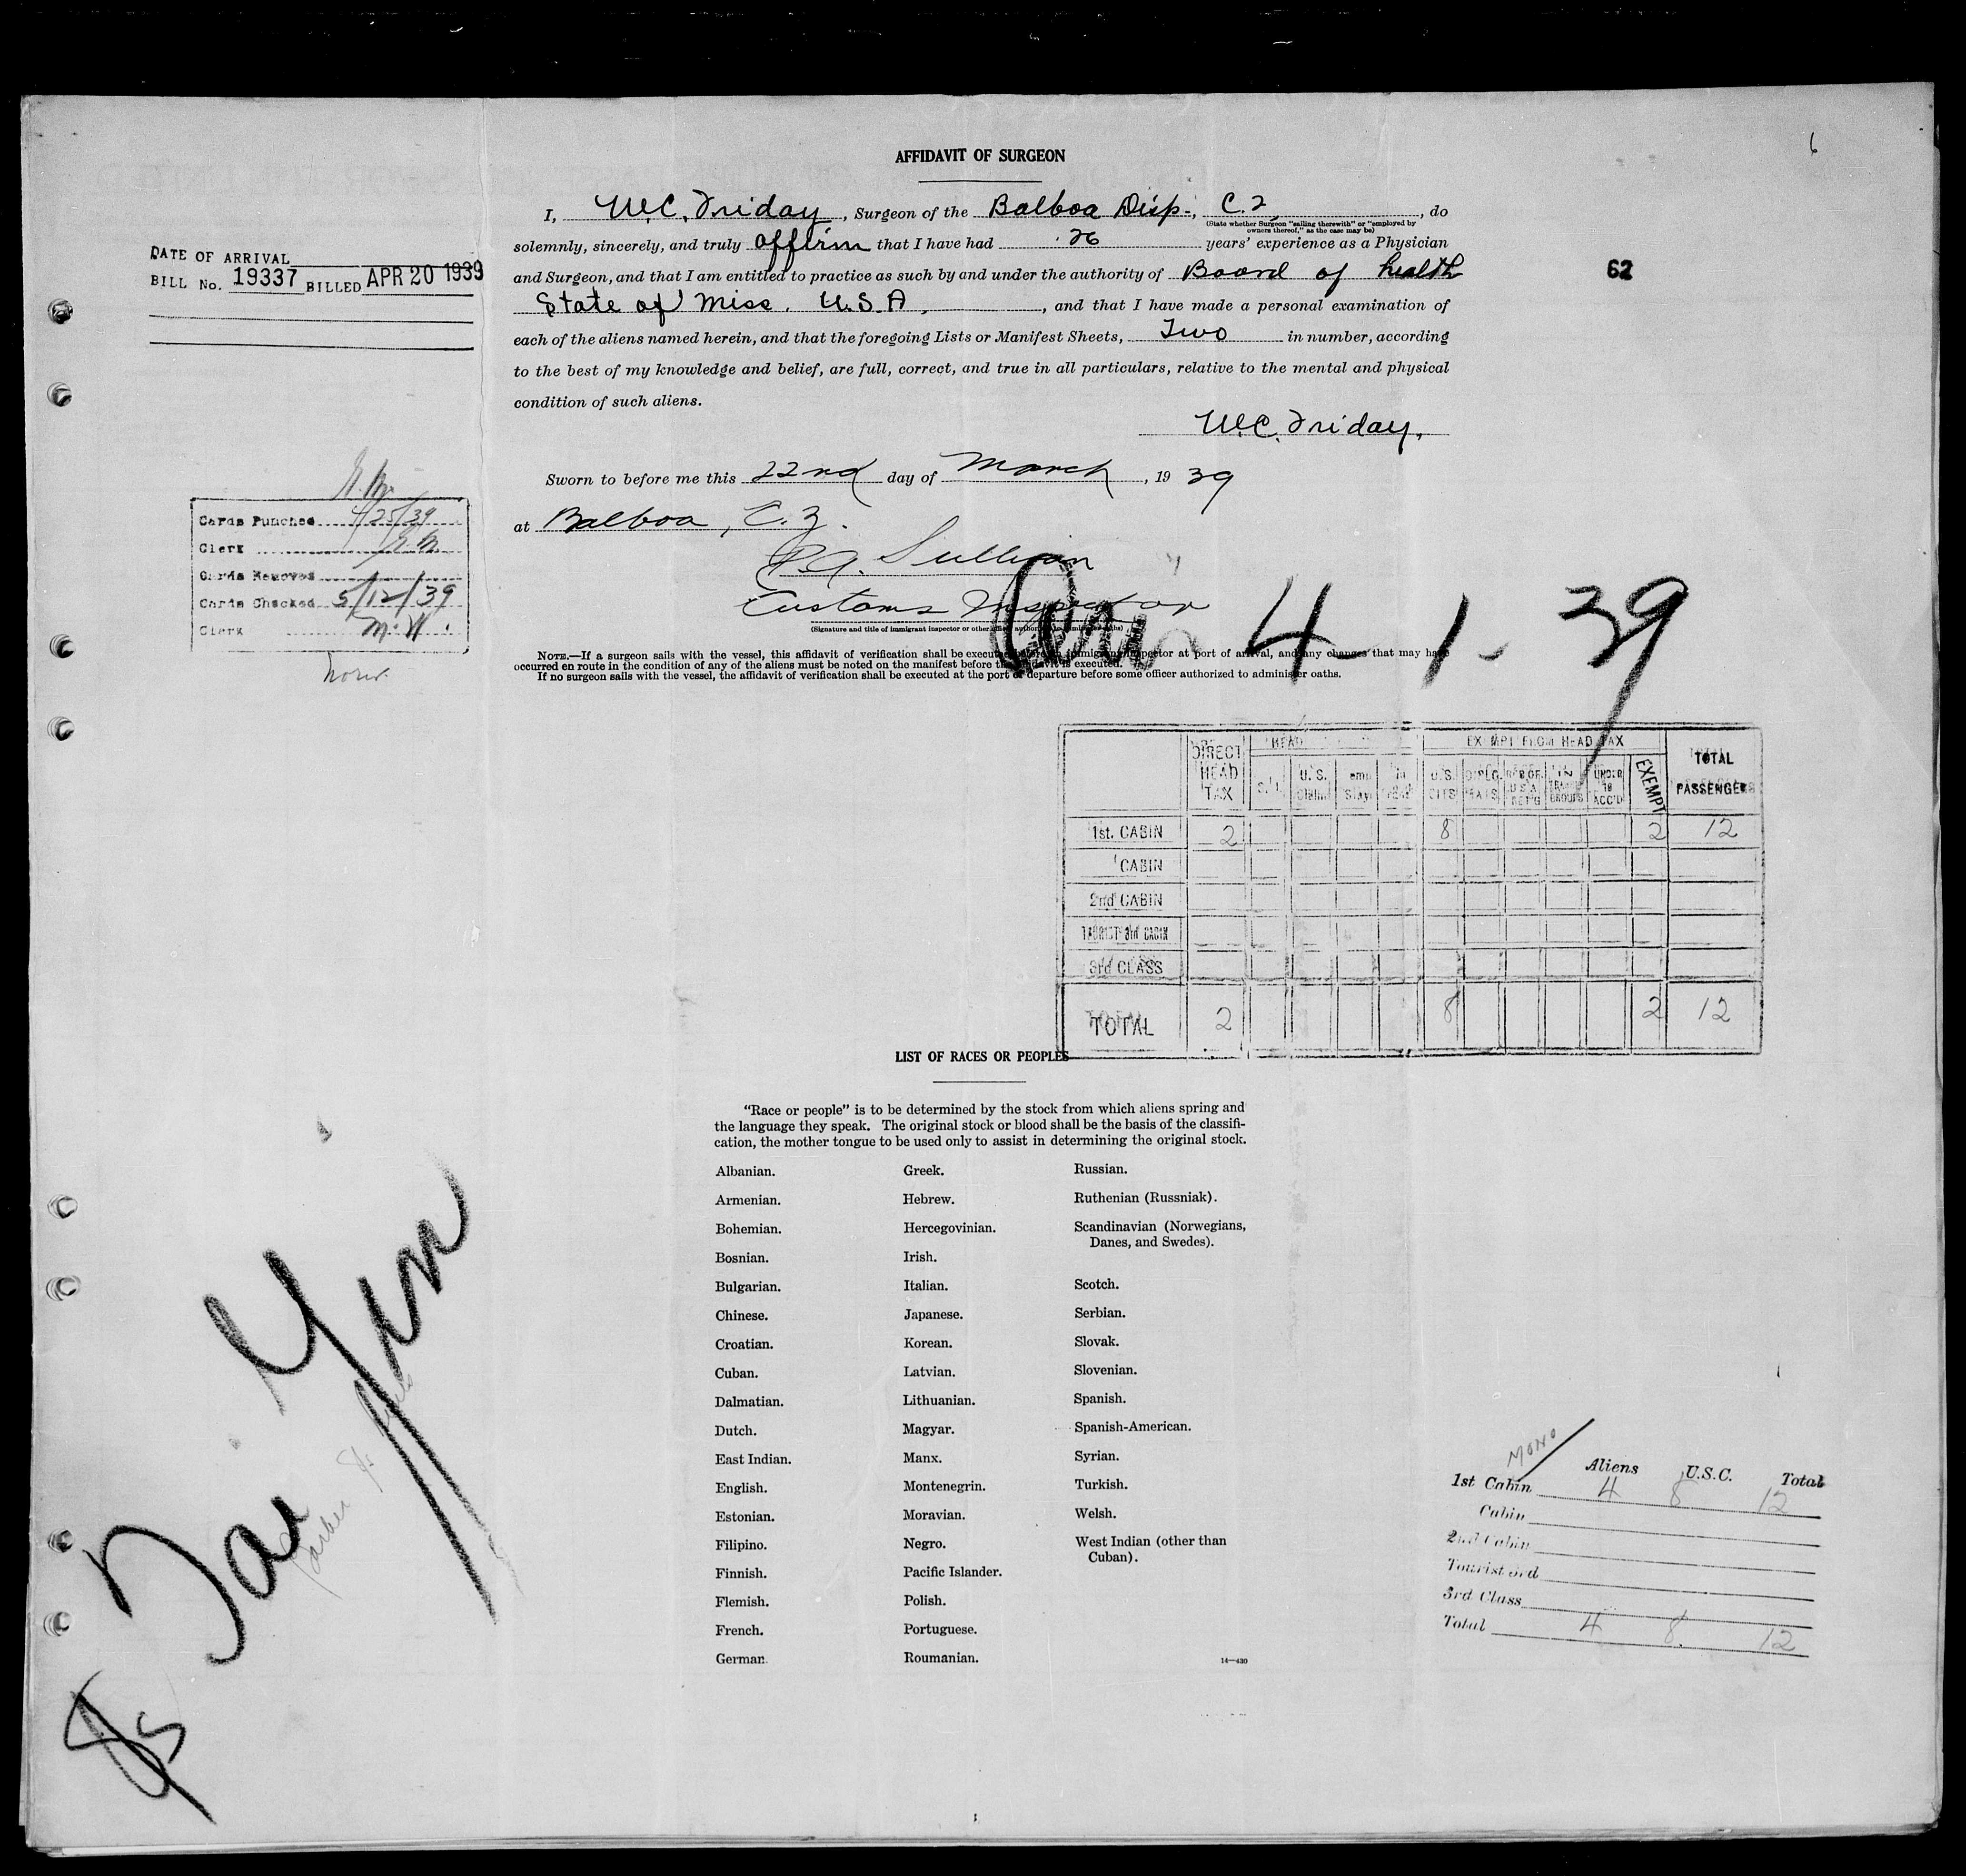 6
AFFIDAVIT OF SURGEON
I, W.C. Friday, Surgeon of the Balboa Disp., C.Z., do
(State whether Surgeon "sailing therewith" or "employed by
owners thereof," as the case may be)
solemnly, sincerely, and truly affirm that I have had 26 years' experience as a Physician
and Surgeon, and that I am entitled to practice as such by and under the authority of Board of health
State of Miss. U.S.A., and that I have made a personal examination of
each of the aliens named herein, and that the foregoing Lists or Manifest Sheets, Two in number, according
to the best of my knowledge and belief, are full, correct, and true in all particulars, relative to the mental and physical
condition of such aliens.
W.C. Friday.
Sworn to before me this 22nd day of March, 1939
at Balboa, C.Z.
Sullivan
Customs Inspector
(Signature and title of immigrant inspector or other officer authorized to administer oaths)
NOTE.—If a surgeon sails with the vessel, this affidavit of verification shall be executed before an immigrant inspector at port of arrival, and any changes that may have
occurred en route in the condition of any of the aliens must be noted on the manifest before the affidavit is executed.
If no surgeon sails with the vessel, the affidavit of verification shall be executed at the port of departure before some officer authorized to administer oaths.
4-1-39
62
DATE OF ARRIVAL
BILL No. 19337 BILLED APR 20 1939
Cards Punched 4/25/39
Clerk
Cards Removed
Cards Checked 5/12/39
Clerk M.W.
DIRECT HEAD TAX
HEAD
U.S.
EXEMPT FROM HEAD TAX
U.S. CITS
EXEMPT
TOTAL PASSENGERS
1st. CABIN 2 8 2 12
CABIN
2nd CABIN
TOURIST 3rd CABIN
3rd CLASS
TOTAL 2 8 2 12
LIST OF RACES OR PEOPLES
"Race or people" is to be determined by the stock from which aliens spring and
the language they speak. The original stock or blood shall be the basis of the classifi-
cation, the mother tongue to be used only to assist in determining the original stock.
Albanian.
Armenian.
Bohemian.
Bosnian.
Bulgarian.
Chinese.
Croatian.
Cuban.
Dalmatian.
Dutch.
East Indian.
English.
Estonian.
Filipino.
Finnish.
Flemish.
French.
German.
Greek.
Hebrew.
Hercegovinian.
Irish.
Italian.
Japanese.
Korean.
Latvian.
Lithuanian.
Magyar.
Manx.
Montenegrin.
Moravian.
Negro.
Pacific Islander.
Polish.
Portuguese.
Roumanian.
Russian.
Ruthenian (Russniak).
Scandinavian (Norwegians,
Danes, and Swedes).
Scotch.
Serbian.
Slovak.
Slovenian.
Spanish.
Spanish-American.
Syrian.
Turkish.
Welsh.
West Indian (other than
Cuban).
14—430
Tai Yin
MONO
Aliens U.S.C. Total
1st Cabin 4 8 12
Cabin
2nd Cabin
Tourist 3rd
3rd Class
Total 4 8 12